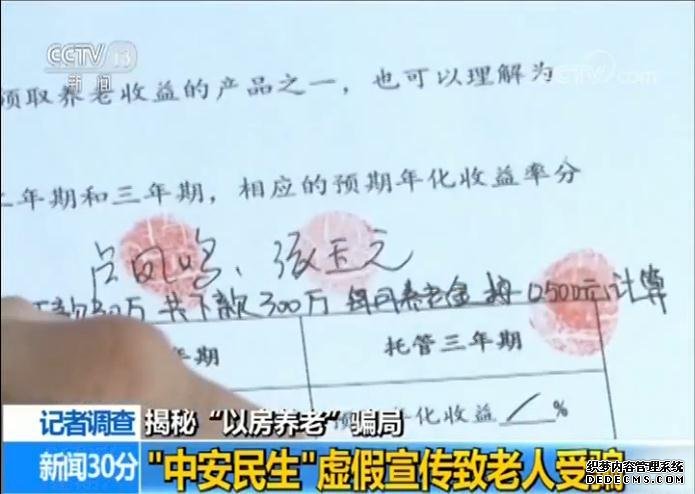 CCTV 13
新闻
CCTV.com
领取养老收益的产品之一，也可以理解为
二年期和三年期，相应的预期年化收益率分
张玉元
下款30万 共下款300万 每月养老金 按 10500元计算
年期
托管三年期
预期年化收益 / %
记者调查 揭秘“以房养老”骗局
新闻30分 "中安民生"虚假宣传致老人受骗
织梦内容管理系统
DEDECMS.COM